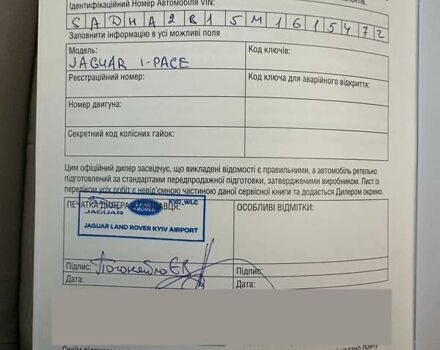 Ідентифікаційний Номер Автомобіля VIN:
SADHA2B15M1615472
Заповнити інформацію в усі можливі поля
Модель:
JAGUAR I-PACE
Код ключів:
Реєстраційний номер:
Код ключа для аварійного відкриття:
Номер двигуна:
Секретний код колісних гайок:
Цим офіційний дилер засвідчує, що викладені відомості є правильними, а автомобіль ретельно
підготовлений за стандартами передпродажної підготовки, затвердженими виробником. Лист із
переліком усіх робіт є невід'ємною частиною даної сервісної книги та додається Дилером окремо.
ПЕЧАТКА ДИЛЕРА
ОСОБЛИВІ ВІДМІТКИ:
JAGUAR
LAND ROVER
KYD_WLC
JAGUAR LAND ROVER KYIV AIRPORT
Підпис:
Підпис:
Дата:
Дата: